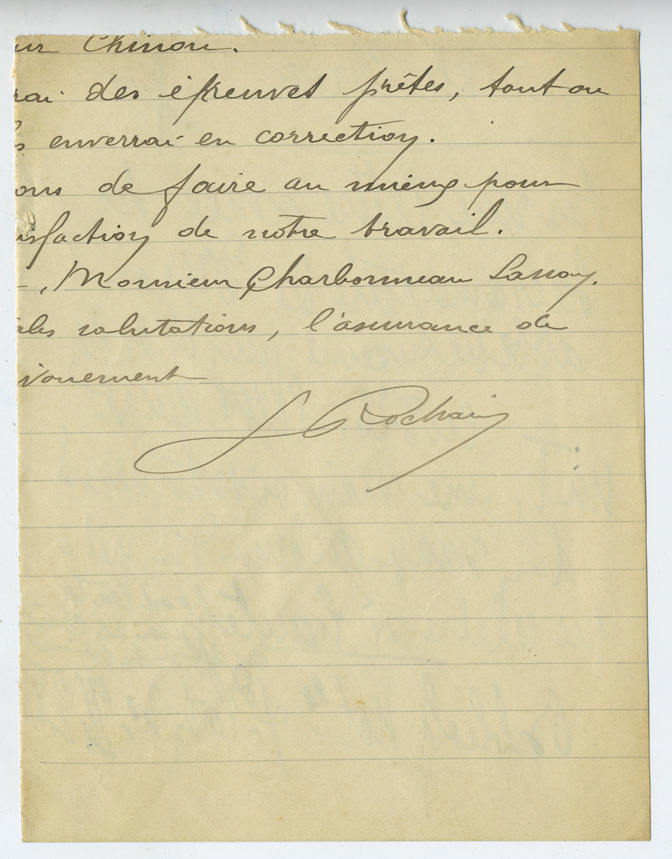 ur Chinon.
rai des épreuves prêtes, tout ou
s enverrai en correction.
ons de faire au mieux pour
isfaction de notre travail.
-, Monsieur Charbonneau Lassay.
ales salutations, l'assurance de
vouement
L Rochain